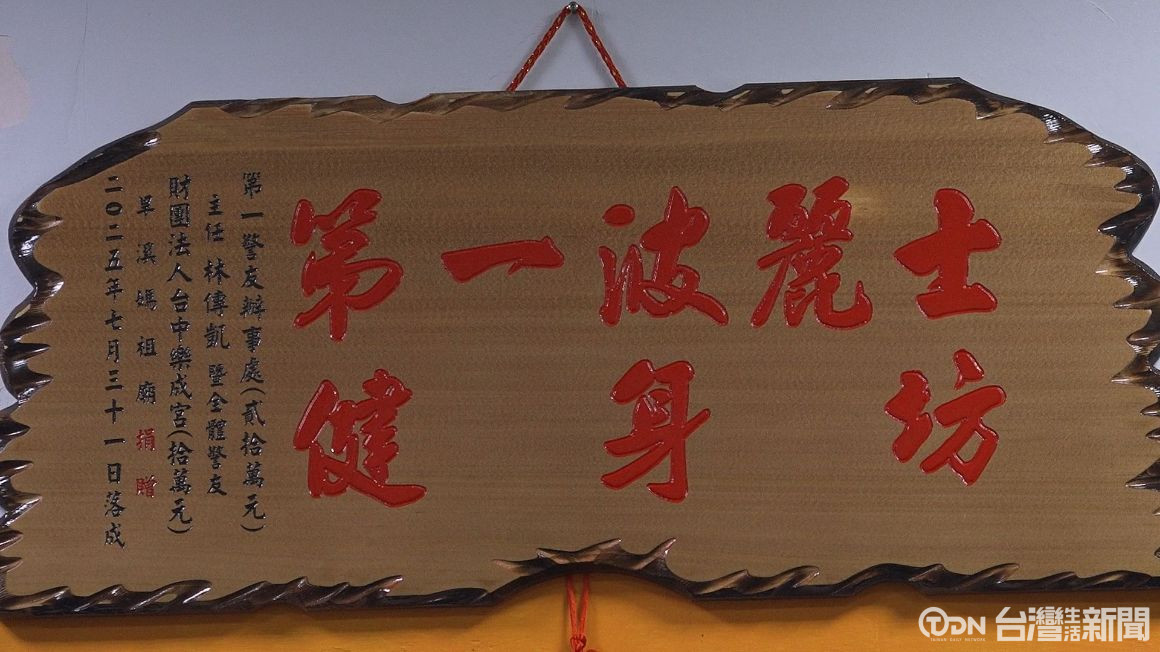 第一波麗士
健身坊
第一警友辦事處(貳拾萬元)
主任 林傳凱 暨全體警友
財團法人台中樂成宮(拾萬元)
旱溪媽祖廟捐贈
二〇二五年七月三十一日落成
TDN 台灣生活新聞
TAIWAN DAILY NETWORK